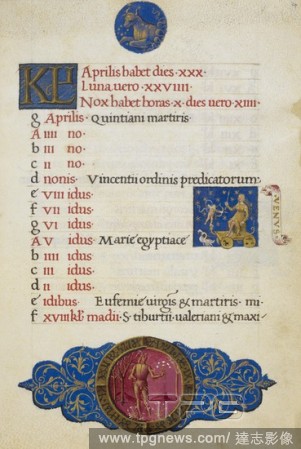 KL Aprilis habet dies · xxx ·
Luna uero · xxviiii ·
Nox habet horas · x · dies uero · xiiii ·
g Aprilis · Quintiani martiris ·
A iiii no ·
b iii no ·
c ii no ·
d nonis · Vincentii ordinis predicatorum ·
e viii idus ·
f vii idus ·
g vi idus ·
A v idus · Marie egyptiace
b iiii idus ·
c iii idus ·
d ii idus ·
e idibus · Eufemie uirgis & martiris · mi·
f xviii kl· madii · S · tiburtii · ualeriani & maxi·
· VENVS ·
TPG
www.tpgnews.com / 達志影像